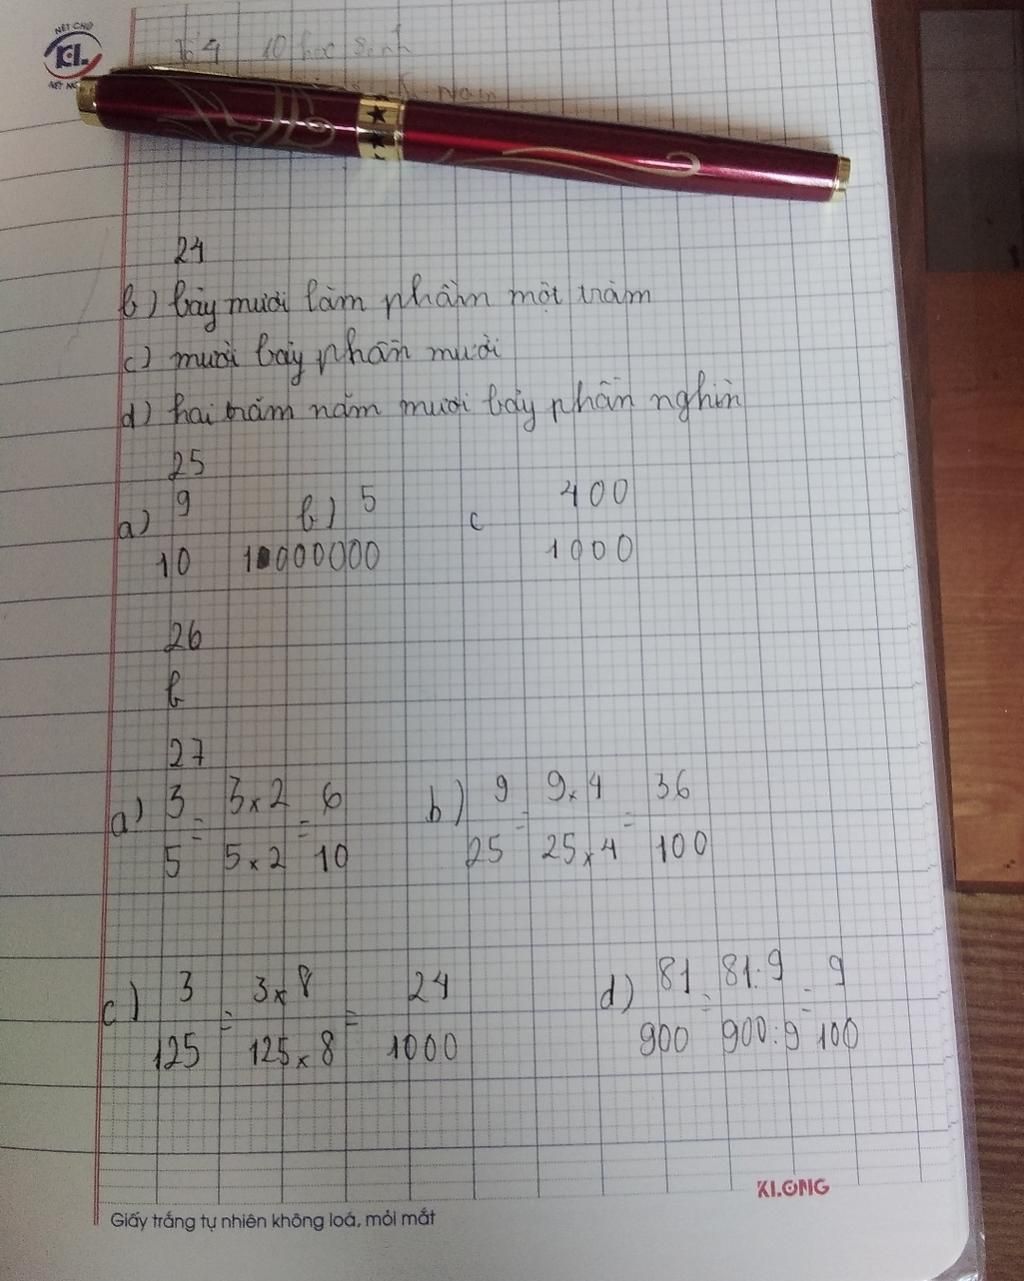 NÉT CHỮ
KL
10 học sinh
24
b) bảy mươi lăm phần một trăm
c) mười bảy phần mười
d) hai trăm năm mươi bảy phần nghìn
25
a) 9/10 b) 5/1000000 c 400/1000
26
b
27
a) 3/5 = 3x2/5x2 = 6/10 b) 9/25 = 9x4/25x4 = 36/100
c) 3/125 = 3x8/125x8 = 24/1000 d) 81/900 = 81:9/900:9 = 9/100
KLONG
Giấy trắng tự nhiên không loá, mỏi mắt